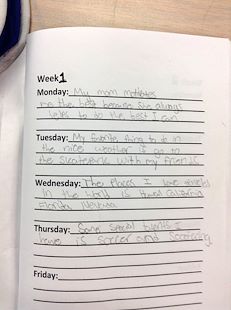 Week1
Monday: My mom motivates
me the best because she always
tells to do the best I can
Tuesday: My favorite thing to do in
the nice weather is go to
the skatepark with my friends
Wednesday: The places I
in the world is Hawaii California
Florida
Thursday: Some special talents I
have is soccer and
Friday: